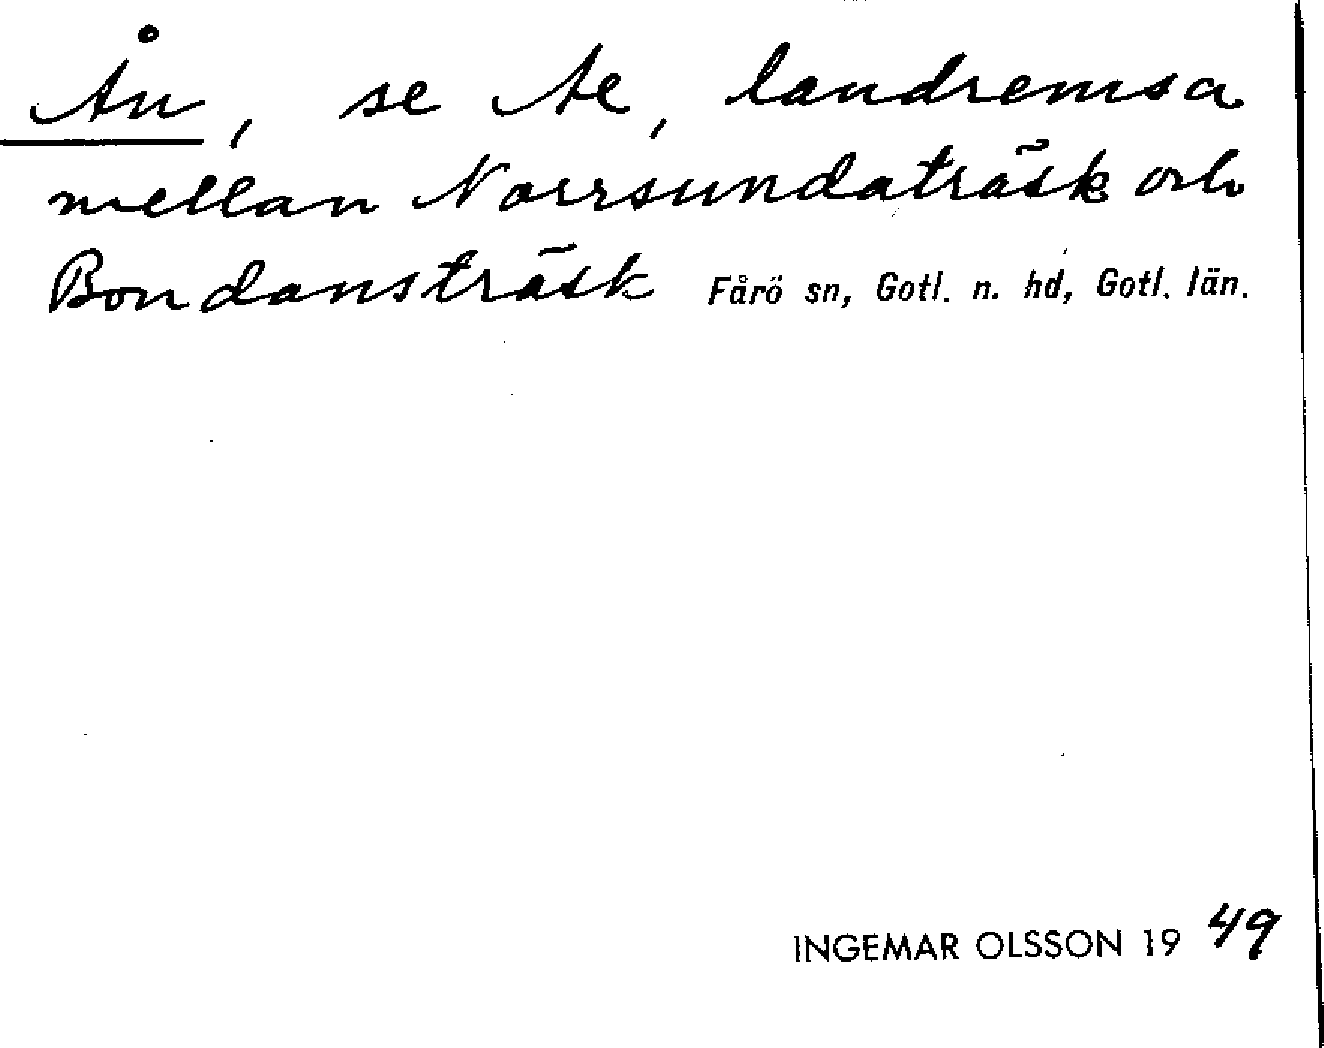 Ån, se Ae, landremsa
mellan Norrsundaträsk och
Bondansträsk Fårö sn, Gotl. n. hd, Gotl. län.
INGEMAR OLSSON 1949